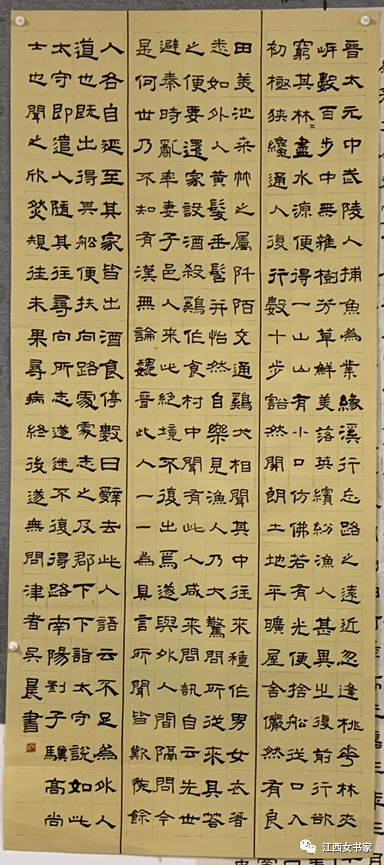 晉太元中武陵人捕魚為業緣溪行忘路之遠近忽逢桃花林夾
岸數百步中無雜樹芳草鮮美落英繽紛漁人甚異之復前行欲
窮其林〻盡水源便得一山山有小口仿佛若有光便捨船從口入
初極狹纔通人復行數十步豁然開朗土地平曠屋舍儼然有良
田美池桑竹之屬阡陌交通鷄犬相聞其中往來種作男女衣著
悉如外人黃髮垂髫并怡然自樂見漁人乃大驚問所從來具答
之便要還家設酒殺鷄作食村中聞有此人咸來問訊自云先世
避秦時亂率妻子邑人來此絕境不復出焉遂與外人間隔問今
是何世乃不知有漢無論魏晉此人一一為具言所聞皆歎惋餘
人各自延至其家皆出酒食停數日辭去此人語云不足為外人
道也既出得其船便扶向路處處志之及郡下下詣太守說如此
太守即遣人隨其往尋向所志遂迷不復得路南陽劉子驥高尚
士也聞之欣然規往未果尋病終後遂無問津者吳晨書
江西女书家